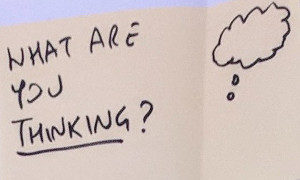 WHAT ARE
YOU
THINKING?